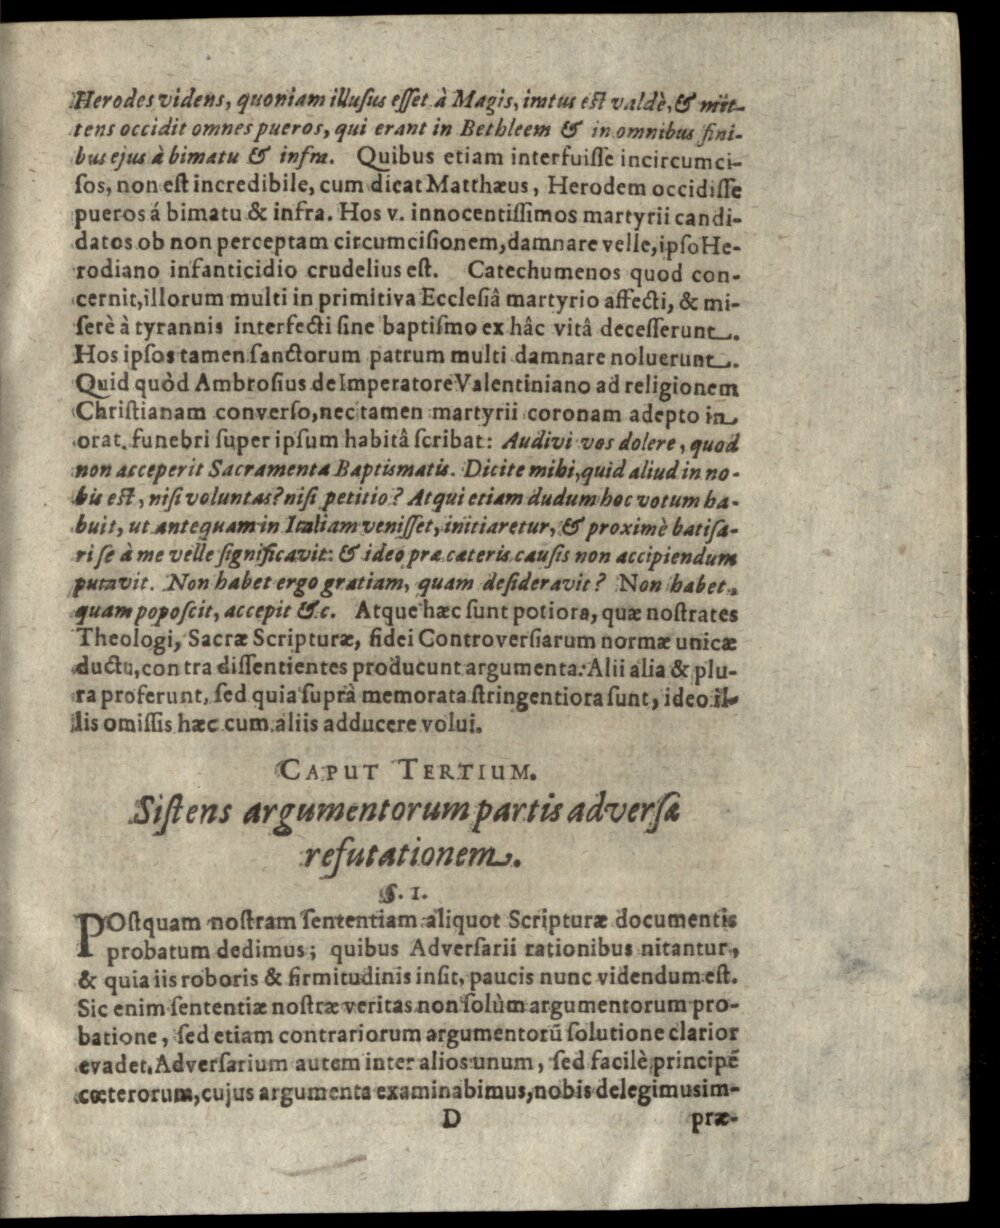 Herodes videns, quoniam illuſus eſſet à Magis, iratus eſt valdè, & mit-
tens occidit omnes pueros, qui erant in Bethleem & in omnibus fini-
bus ejus à bimatu & infra. Quibus etiam interfuiſſe incircumci-
ſos, non eſt incredibile, cum dicat Matthæus, Herodem occidiſſe
pueros á bimatu & infra. Hos v. innocentiſſimos martyrii candi-
datos ob non perceptam circumciſionem, damnare velle, ipſo He-
rodiano infanticidio crudelius eſt. Catechumenos quod con-
cernit, illorum multi in primitiva Eccleſiâ martyrio affecti, & mi-
ſerè à tyrannis interfecti ſine baptiſmo ex hâc vitâ deceſſerunt.
Hos ipſos tamen ſanctorum patrum multi damnare noluerunt.
Quid quòd Ambroſius de Imperatore Valentiniano ad religionem
Chriſtianam converſo, nec tamen martyrii coronam adepto in
orat. funebri ſuper ipſum habitâ ſcribat: Audivi vos dolere, quod
non acceperit Sacramenta Baptismatis. Dicite mihi, quid aliud in no-
bis eſt, niſi voluntas? niſi petitio? Atqui etiam dudum hoc votum ha-
buit, ut antequam in Italiam veniſſet, initiaretur, & proximè batiſa-
ri ſe à me velle ſignificavit: & ideo præ cateris cauſis non accipiendum
putavit. Non habet ergo gratiam, quam deſideravit? Non habet,
quam popoſcit, accepit &c. Atque hæc ſunt potiora, quæ noſtrates
Theologi, Sacræ Scripturæ, fidei Controverſiarum normæ unicæ
ductu, contra diſſentientes producunt argumenta: Alii alia & plu-
ra proferunt, ſed quia ſuprà memorata ſtringentiora ſunt, ideo il-
lis omiſſis hæc cum aliis adducere volui.
CAPUT TERTIUM.
Siſtens argumentorum partis adverſæ
refutationem.
§. 1.
POſtquam noſtram ſententiam aliquot Scripturæ documentis
probatum dedimus; quibus Adverſarii rationibus nitantur,
& quia iis roboris & firmitudinis inſit, paucis nunc videndum eſt.
Sic enim ſententiæ noſtræ veritas non ſolùm argumentorum pro-
batione, ſed etiam contrariorum argumentorũ ſolutione clarior
evadet. Adverſarium autem inter alios unum, ſed facilè principẽ
cœterorum, cujus argumenta examinabimus, nobis delegimus im-
D præ-